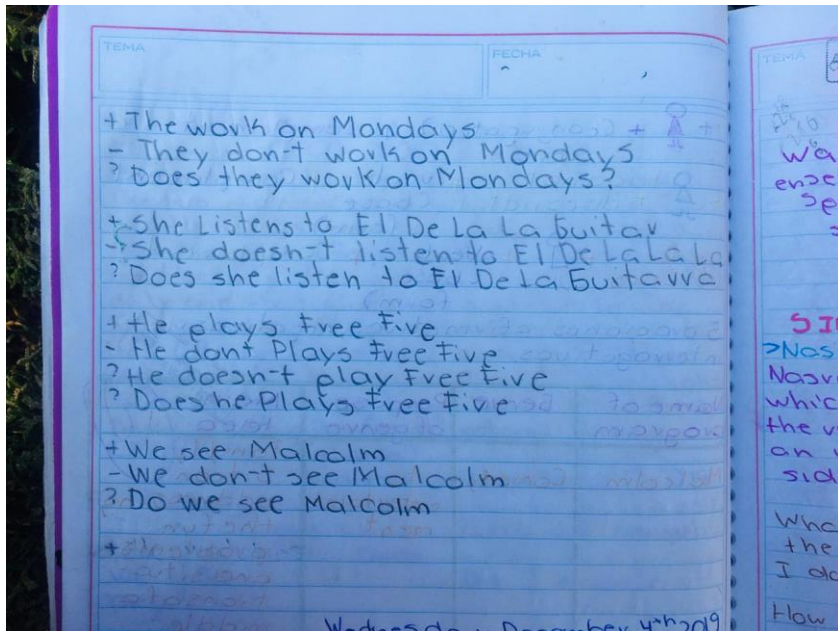 TEMA
FECHA
+ The work on Mondays
- They don-t work on Mondays
? Does they work on Mondays?
+ She Listens to El De La La Guitar
- She doesn-t listen to El De La La La
? Does she listen to El De La Guitarra
+ He plays Free Fire
- He dont Plays Free Fire
? He doesn-t play Free Fire
? Does he Plays Free Fire
+ We see Malcolm
- We don-t see Malcolm
? Do we see Malcolm
+
Wednesday December 4th 2019
TEMA
>Nas
which
the
an
sid
Wha
the
I do
How